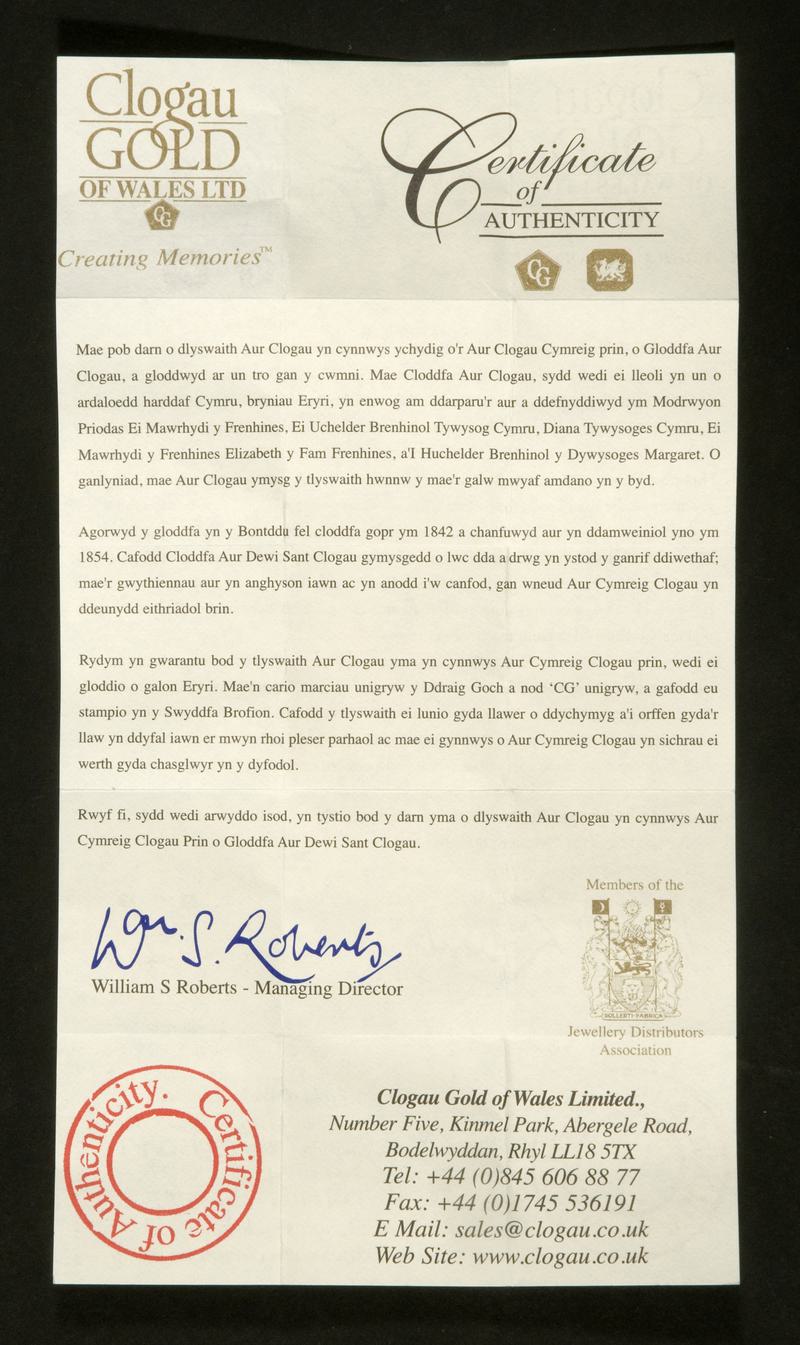 Clogau
GOLD
OF WALES LTD
CG
Creating Memories™
Certificate
of
AUTHENTICITY
CG
Mae pob darn o dlyswaith Aur Clogau yn cynnwys ychydig o'r Aur Clogau Cymreig prin, o Gloddfa Aur
Clogau, a gloddwyd ar un tro gan y cwmni. Mae Cloddfa Aur Clogau, sydd wedi ei lleoli yn un o
ardaloedd harddaf Cymru, bryniau Eryri, yn enwog am ddarparu'r aur a ddefnyddiwyd ym Modrwyon
Priodas Ei Mawrhydi y Frenhines, Ei Uchelder Brenhinol Tywysog Cymru, Diana Tywysoges Cymru, Ei
Mawrhydi y Frenhines Elizabeth y Fam Frenhines, a'I Huchelder Brenhinol y Dywysoges Margaret. O
ganlyniad, mae Aur Clogau ymysg y tlyswaith hwnnw y mae'r galw mwyaf amdano yn y byd.
Agorwyd y gloddfa yn y Bontddu fel cloddfa gopr ym 1842 a chanfuwyd aur yn ddamweiniol yno ym
1854. Cafodd Cloddfa Aur Dewi Sant Clogau gymysgedd o lwc dda a drwg yn ystod y ganrif ddiwethaf;
mae'r gwythiennau aur yn anghyson iawn ac yn anodd i'w canfod, gan wneud Aur Cymreig Clogau yn
ddeunydd eithriadol brin.
Rydym yn gwarantu bod y tlyswaith Aur Clogau yma yn cynnwys Aur Cymreig Clogau prin, wedi ei
gloddio o galon Eryri. Mae'n cario marciau unigryw y Ddraig Goch a nod ‘CG’ unigryw, a gafodd eu
stampio yn y Swyddfa Brofion. Cafodd y tlyswaith ei lunio gyda llawer o ddychymyg a'i orffen gyda'r
llaw yn ddyfal iawn er mwyn rhoi pleser parhaol ac mae ei gynnwys o Aur Cymreig Clogau yn sichrau ei
werth gyda chasglwyr yn y dyfodol.
Rwyf fi, sydd wedi arwyddo isod, yn tystio bod y darn yma o dlyswaith Aur Clogau yn cynnwys Aur
Cymreig Clogau Prin o Gloddfa Aur Dewi Sant Clogau.
Wm. S. Roberts
William S Roberts - Managing Director
Members of the
SOLLERTI FABRICA
Jewellery Distributors
Association
Certificate of Authenticity.
Clogau Gold of Wales Limited.,
Number Five, Kinmel Park, Abergele Road,
Bodelwyddan, Rhyl LL18 5TX
Tel: +44 (0)845 606 88 77
Fax: +44 (0)1745 536191
E Mail: sales@clogau.co.uk
Web Site: www.clogau.co.uk